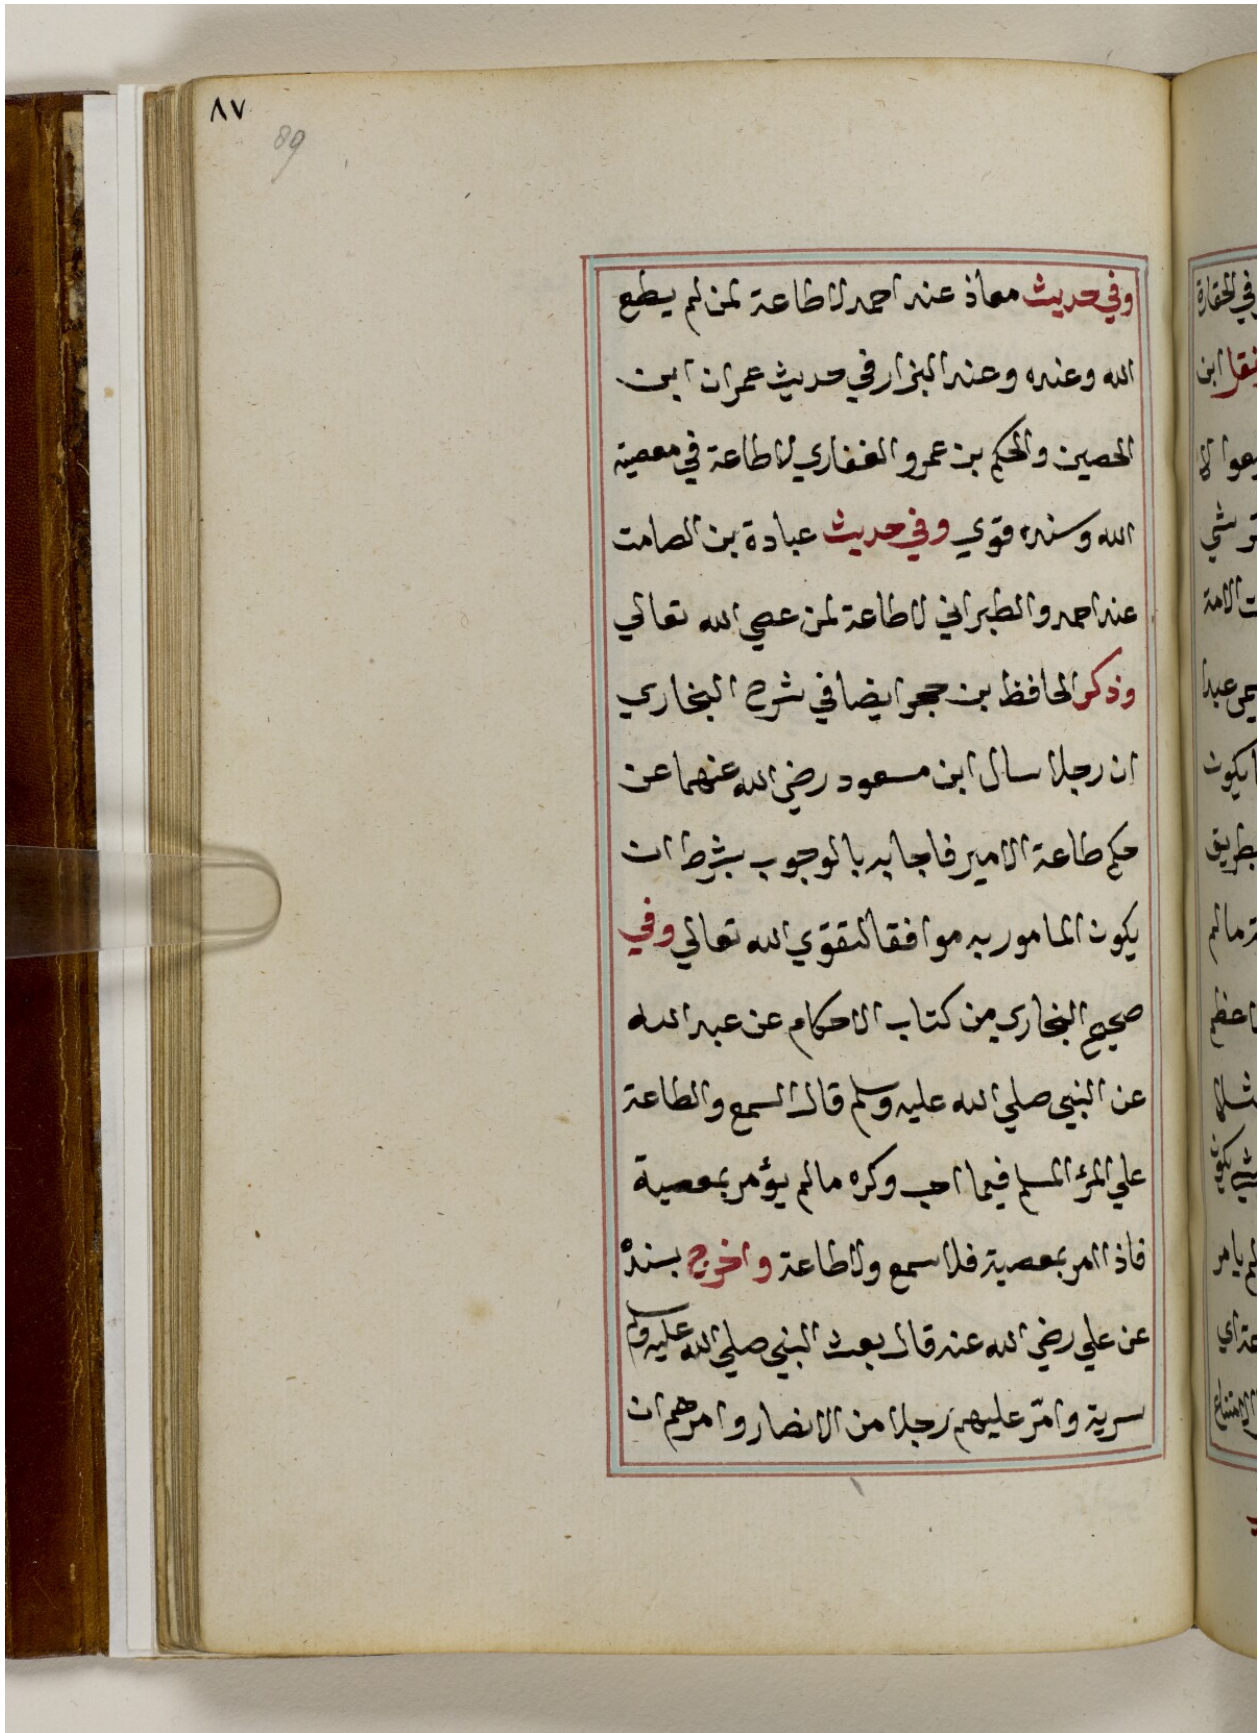 ٨٧
89
وفي حديث معاذ عند احمد لا طاعة لمن لم يطع
الله وعنده وعند البزار في حديث عمران ابن
الحصين والحكم بن عمرو الغفاري لا طاعة في معصية
الله وسنده قوي وفي حديث عبادة بن الصامت
عند احمد والطبراني لا طاعة لمن عصي الله تعالي
وذكر الحافظ بن حجر ايضا في شرح البخاري
ان رجلا سال ابن مسعود رضي الله عنهما عن
حكم طاعة الامير فاجابه بالوجوب بشرط ان
يكون المامور به موافقا لتقوي الله تعالي وفي
صحيح البخاري من كتاب الاحكام عن عبد الله
عن النبي صلي الله عليه وسلم قال السمع والطاعة
علي المرء المسلم فيما احب وكره مالم يؤمر بمعصية
فاذا امر بمعصية فلا سمع ولا طاعة واخرج بسنده
عن علي رضي الله عنه قال بعث النبي صلي الله عليه وسلم
سرية وامّر عليهم رجلا من الانصار وامرهم ان
في الحقارة
ابن
الامة
يكون
بطريق
مالم
يكون
يامر
الامتناع